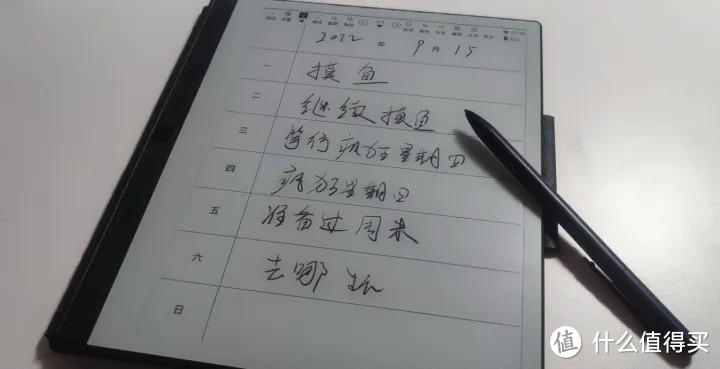 2022 年 9 月 15
一 摸鱼
二 继续摸鱼
三 等待疯狂星期四
四 疯狂星期四
五 准备过周末
六 去哪玩
日
值 什么值得买